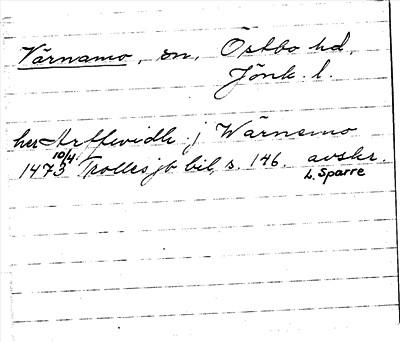 Värnamo, sn, Östbo hd,
Jönk. l.
her Arffwidh j Wärnemo
1473 10/4 Trolles jb bil, s. 146. avskr.
L. Sparre